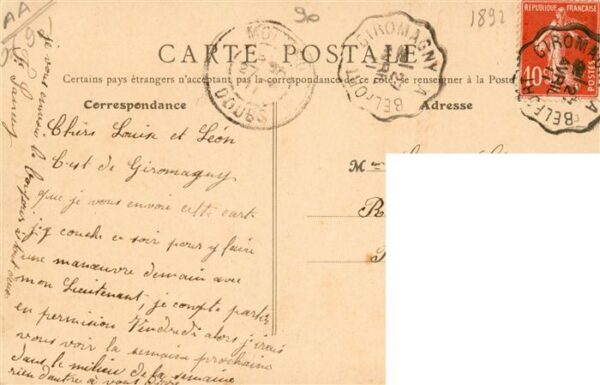 AA
90
1892
CARTE POSTALE
Certains pays étrangers n'acceptant pas la correspondance de ce côté, se renseigner à la Poste
Correspondance
Adresse
Chers Louise et Léon
C'est de Giromagny
que je vous envoie cette carte
j'y couche ce soir pour y faire
une manœuvre demain avec
mon Lieutenant, je compte partir
en permission Vendredi alors j'irais
vous voir la semaine prochaine
dans le milieu de la semaine
rien d'autre à vous dire
je vous envoie le bonjour à tous deux
M
R
DOUBS
GIROMAGNY A BELFORT
RÉPUBLIQUE FRANÇAISE
10
GIROMAGNY A BELFORT
AVRIL